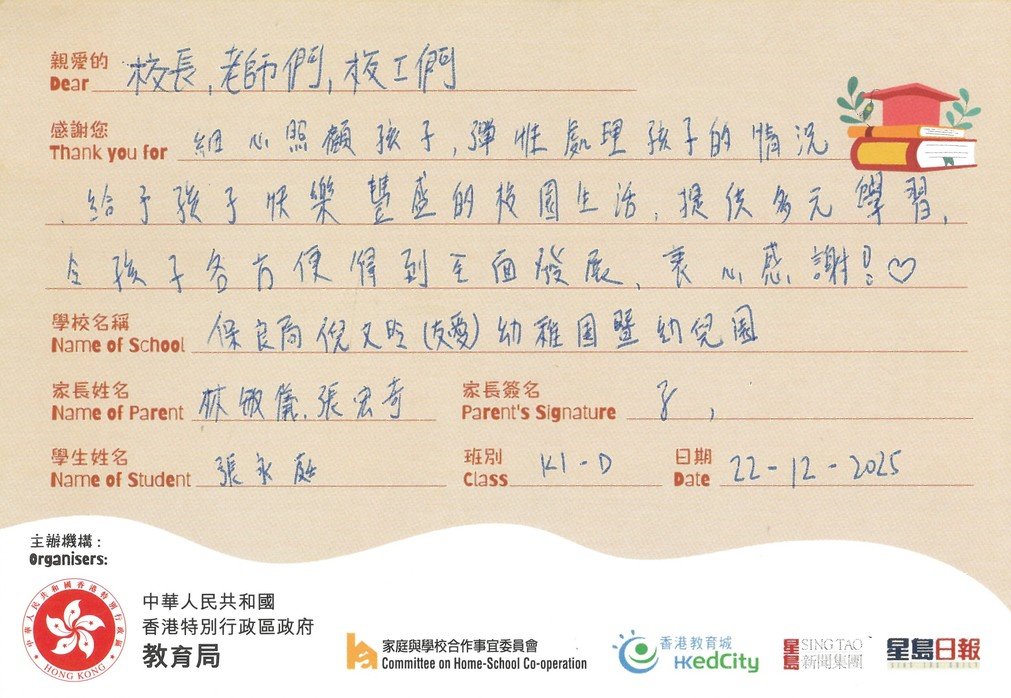 親愛的
Dear 校長, 老師們, 校工們
感謝您
Thank you for 細心照顧孩子, 彈性處理孩子的情況
, 給予孩子快樂豐盛的校園生活, 提供多元學習,
令孩子各方便得到全面發展, 衷心感謝! ♡
學校名稱
Name of School 保良局倪文玲(友愛)幼稚園暨幼兒園
家長姓名 家長簽名
Name of Parent 林敏儀, 張宏奇 Parent's Signature
學生姓名 班別 日期
Name of Student 張永 Class K1-D Date 22-12-2025
主辦機構：
Organisers:
中華人民共和國香港特別行政區
HONG KONG
中華人民共和國
香港特別行政區政府
教育局
家庭與學校合作事宜委員會
Committee on Home-School Co-operation
香港教育城
HKedCity
星島 SING TAO
新聞集團
星島日報
SING TAO DAILY